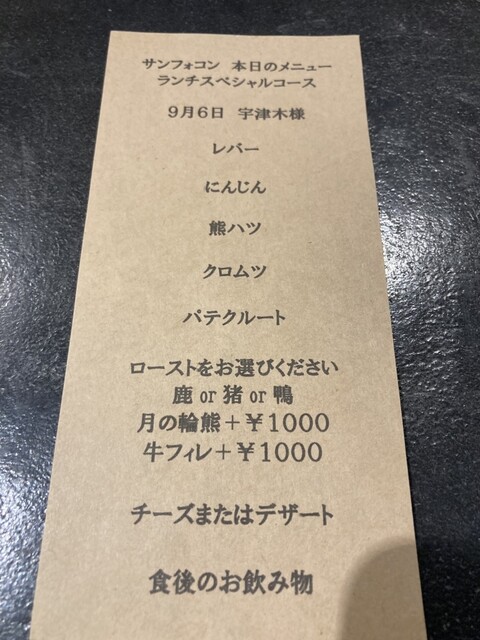 サンフォコン 本日のメニュー
ランチスペシャルコース
9月6日 宇津木様
レバー
にんじん
熊ハツ
クロムツ
パテクルート
ローストをお選びください
鹿 or 猪 or 鴨
月の輪熊＋￥1000
牛フィレ＋￥1000
チーズまたはデザート
食後のお飲み物